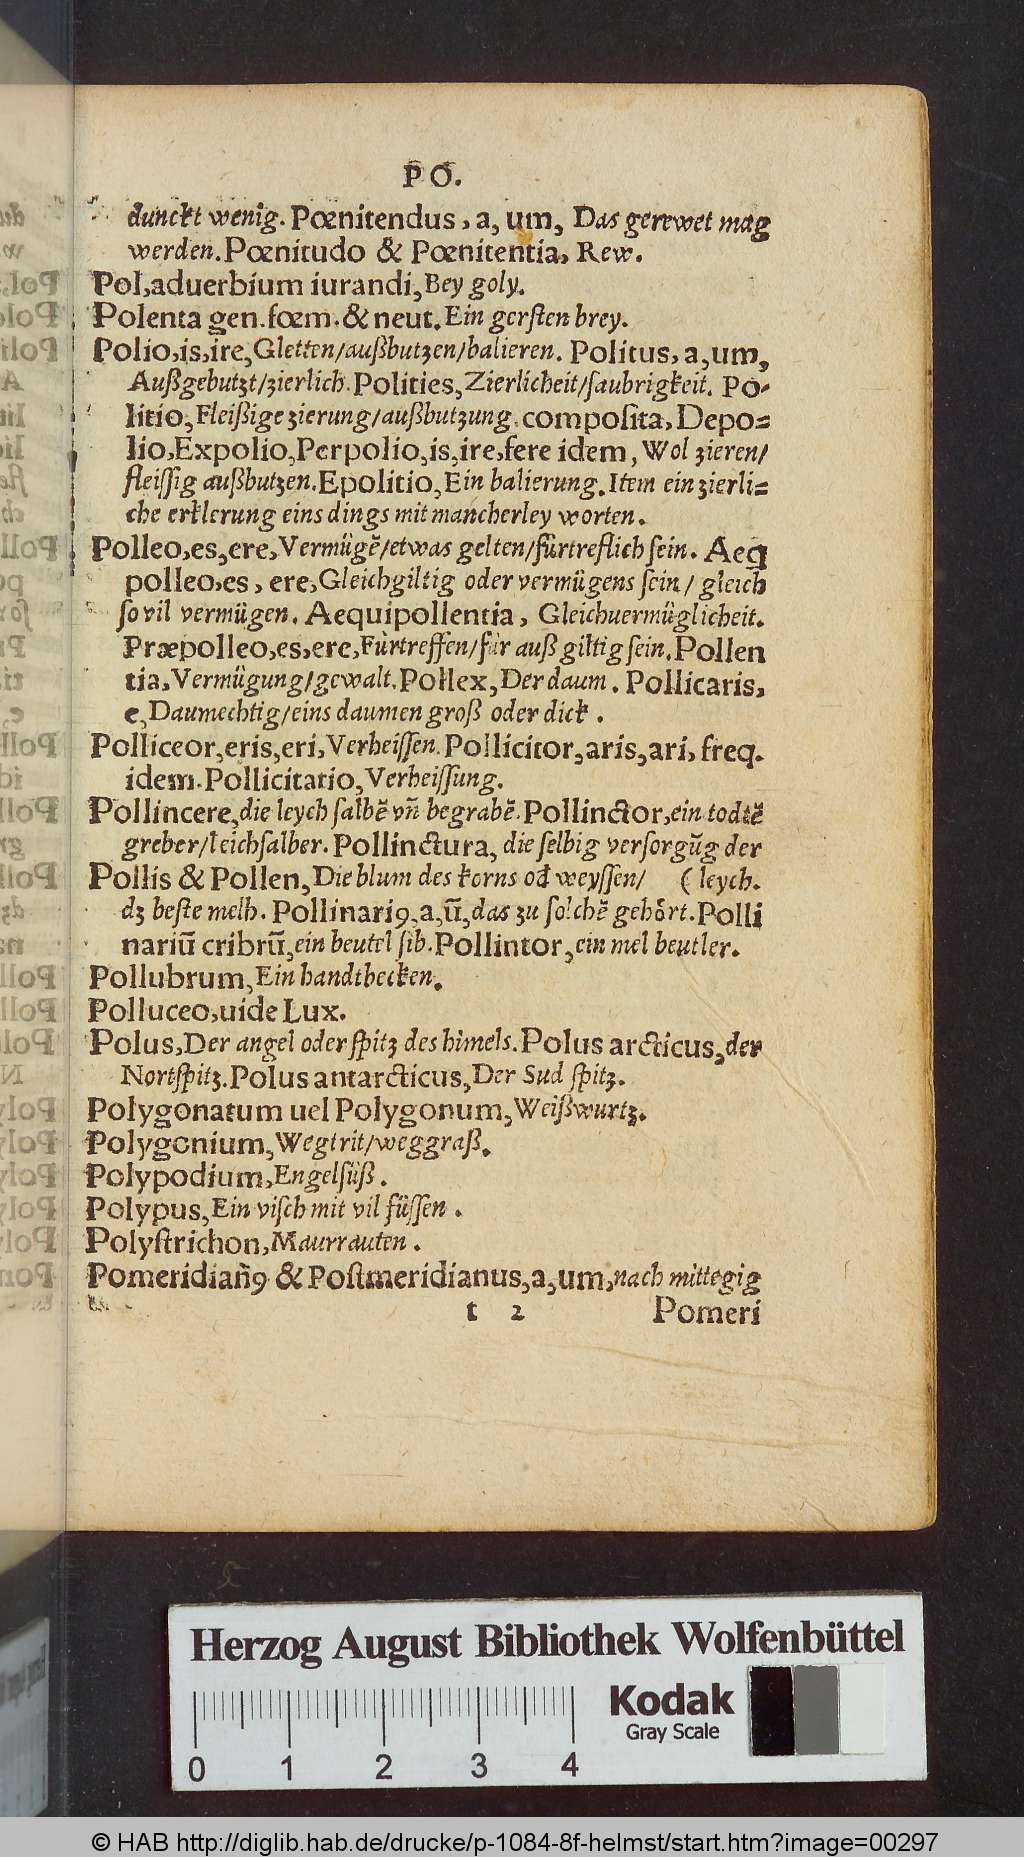 PO.
dunckt wenig. Pœnitendus, a, um, Das gerewet mag
werden. Pœnitudo & Pœnitentia, Rew.
Pol, aduerbium iurandi, Bey goly.
Polenta gen. fœm. & neut. Ein gerſten brey.
Polio, is, ire, Gletten/außbutzen/balieren. Politus, a, um,
Außgebutzt/zierlich. Polities, Zierlicheit/ſaubrigkeit. Po-
litio, Fleißige zierung/außbutzung. compoſita, Depo=
lio, Expolio, Perpolio, is, ire, fere idem, Wol zieren/
fleiſſig außbutzen. Epolitio, Ein balierung. Item ein zierli=
che erklerung eins dings mit mancherley worten.
Polleo, es, ere, Vermügẽ/etwas gelten/fürtreflich ſein. Aeq
polleo, es, ere, Gleichgiltig oder vermügens ſein/ gleich
ſo vil vermügen. Aequipollentia, Gleichuermüglicheit.
Præpolleo, es, ere, Fürtreffen/für auß giltig ſein. Pollen
tia, Vermügung/gewalt. Pollex, Der daum. Pollicaris,
e, Daumechtig/eins daumen groß oder dick.
Polliceor, eris, eri, Verheiſſen. Pollicitor, aris, ari, freq.
idem. Pollicitatio, Verheiſſung.
Pollincere, die leych ſalbẽ vñ begrabẽ. Pollinctor, ein todtẽ
greber/leichſalber. Pollinctura, die ſelbig verſorgũg der
Pollis & Pollen, Die blum des korns oď weyſſen/ (leych.
dz beſte melb. Pollinariꝯ, a, ũ, das zu ſolchẽ gehört. Polli
nariũ cribrũ, ein beutel ſib. Pollintor, ein mel beutler.
Pollubrum, Ein handtbecken.
Polluceo, uide Lux.
Polus, Der angel oder ſpitz des himels. Polus arcticus, der
Nortſpitz. Polus antarcticus, Der Sud ſpitz.
Polygonatum uel Polygonum, Weißwurtz.
Polygonium, Wegtrit/weggraß.
Polypodium, Engelſüß.
Polypus, Ein viſch mit vil füſſen.
Polyſtrichon, Maurrauten.
Pomeridian̄ꝯ & Poſtmeridianus, a, um, nach mittegig
t 2 Pomeri
Herzog August Bibliothek Wolfenbüttel
Kodak
Gray Scale
0 1 2 3 4
© HAB http://diglib.hab.de/drucke/p-1084-8f-helmst/start.htm?image=00297